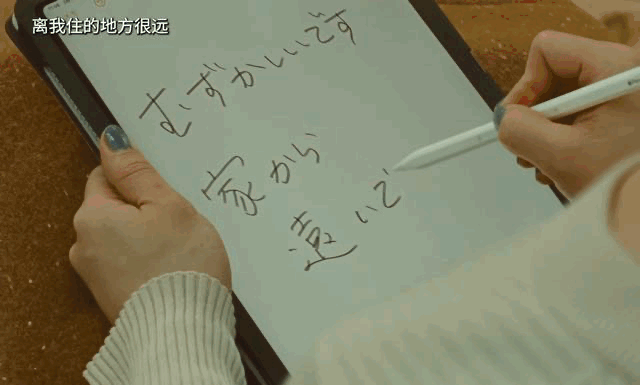 离我住的地方很远
むずかしいです
家から
遠いで